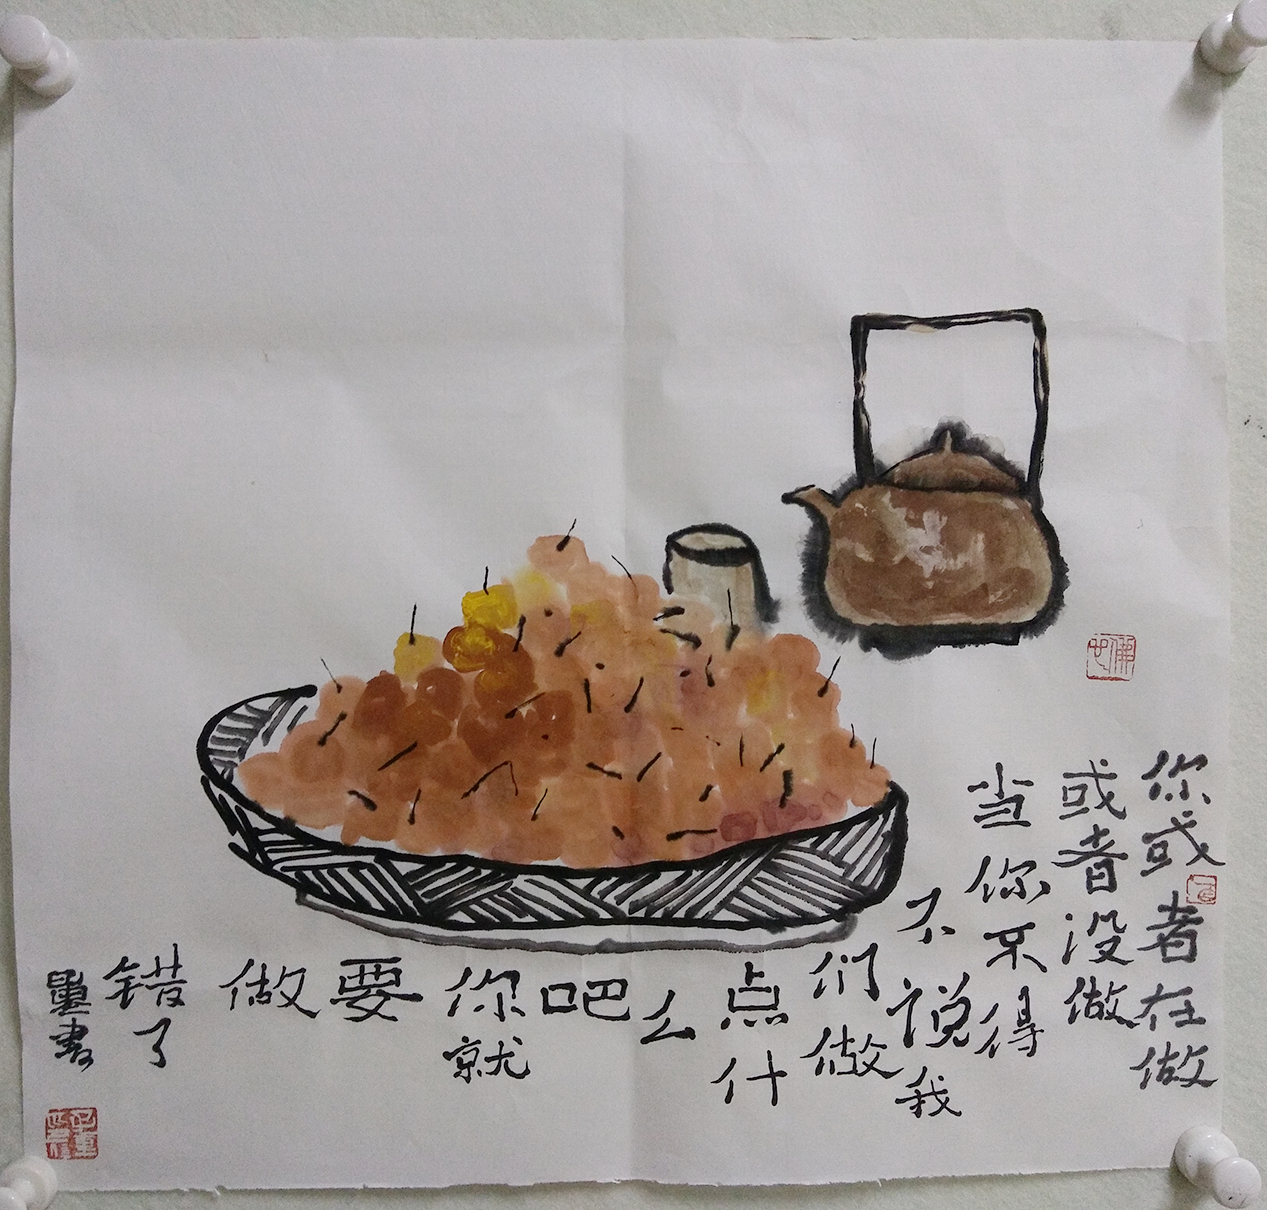 你或者在做
或者没做
当你不得
不说我
们做
点什
么
吧
你就
要
做
错了
書